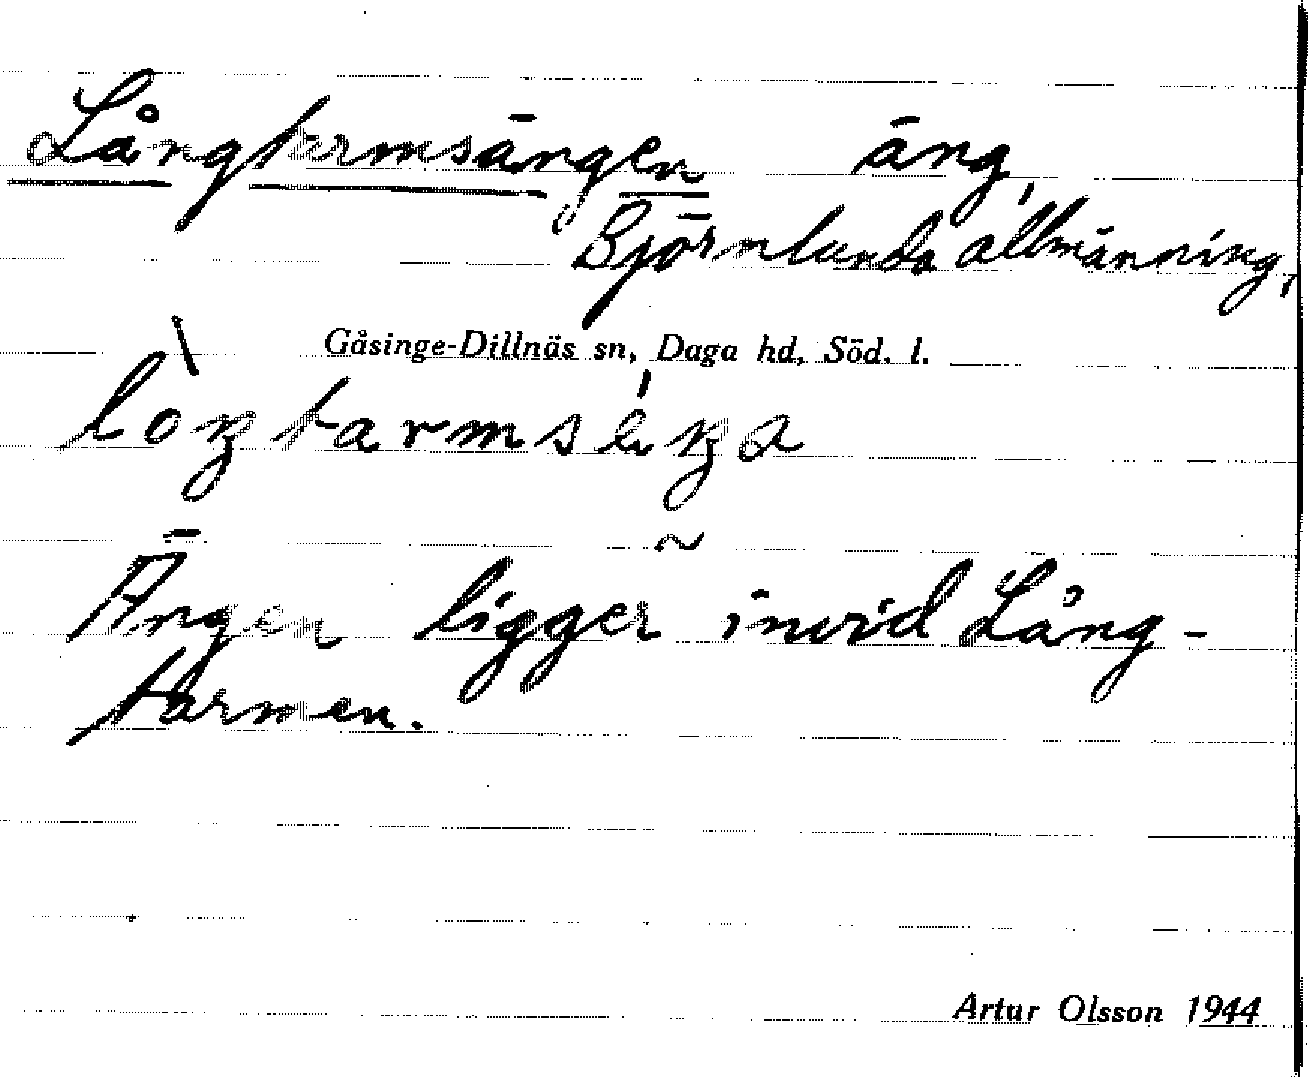 Långtarmsängen äng,
Björnlunda allmänning,
Gåsinge-Dillnäs sn, Daga hd, Söd. l.
lò̀ŋtarmséŋa
Ängen ligger invid Lång-
tarmen.
Artur Olsson 1944